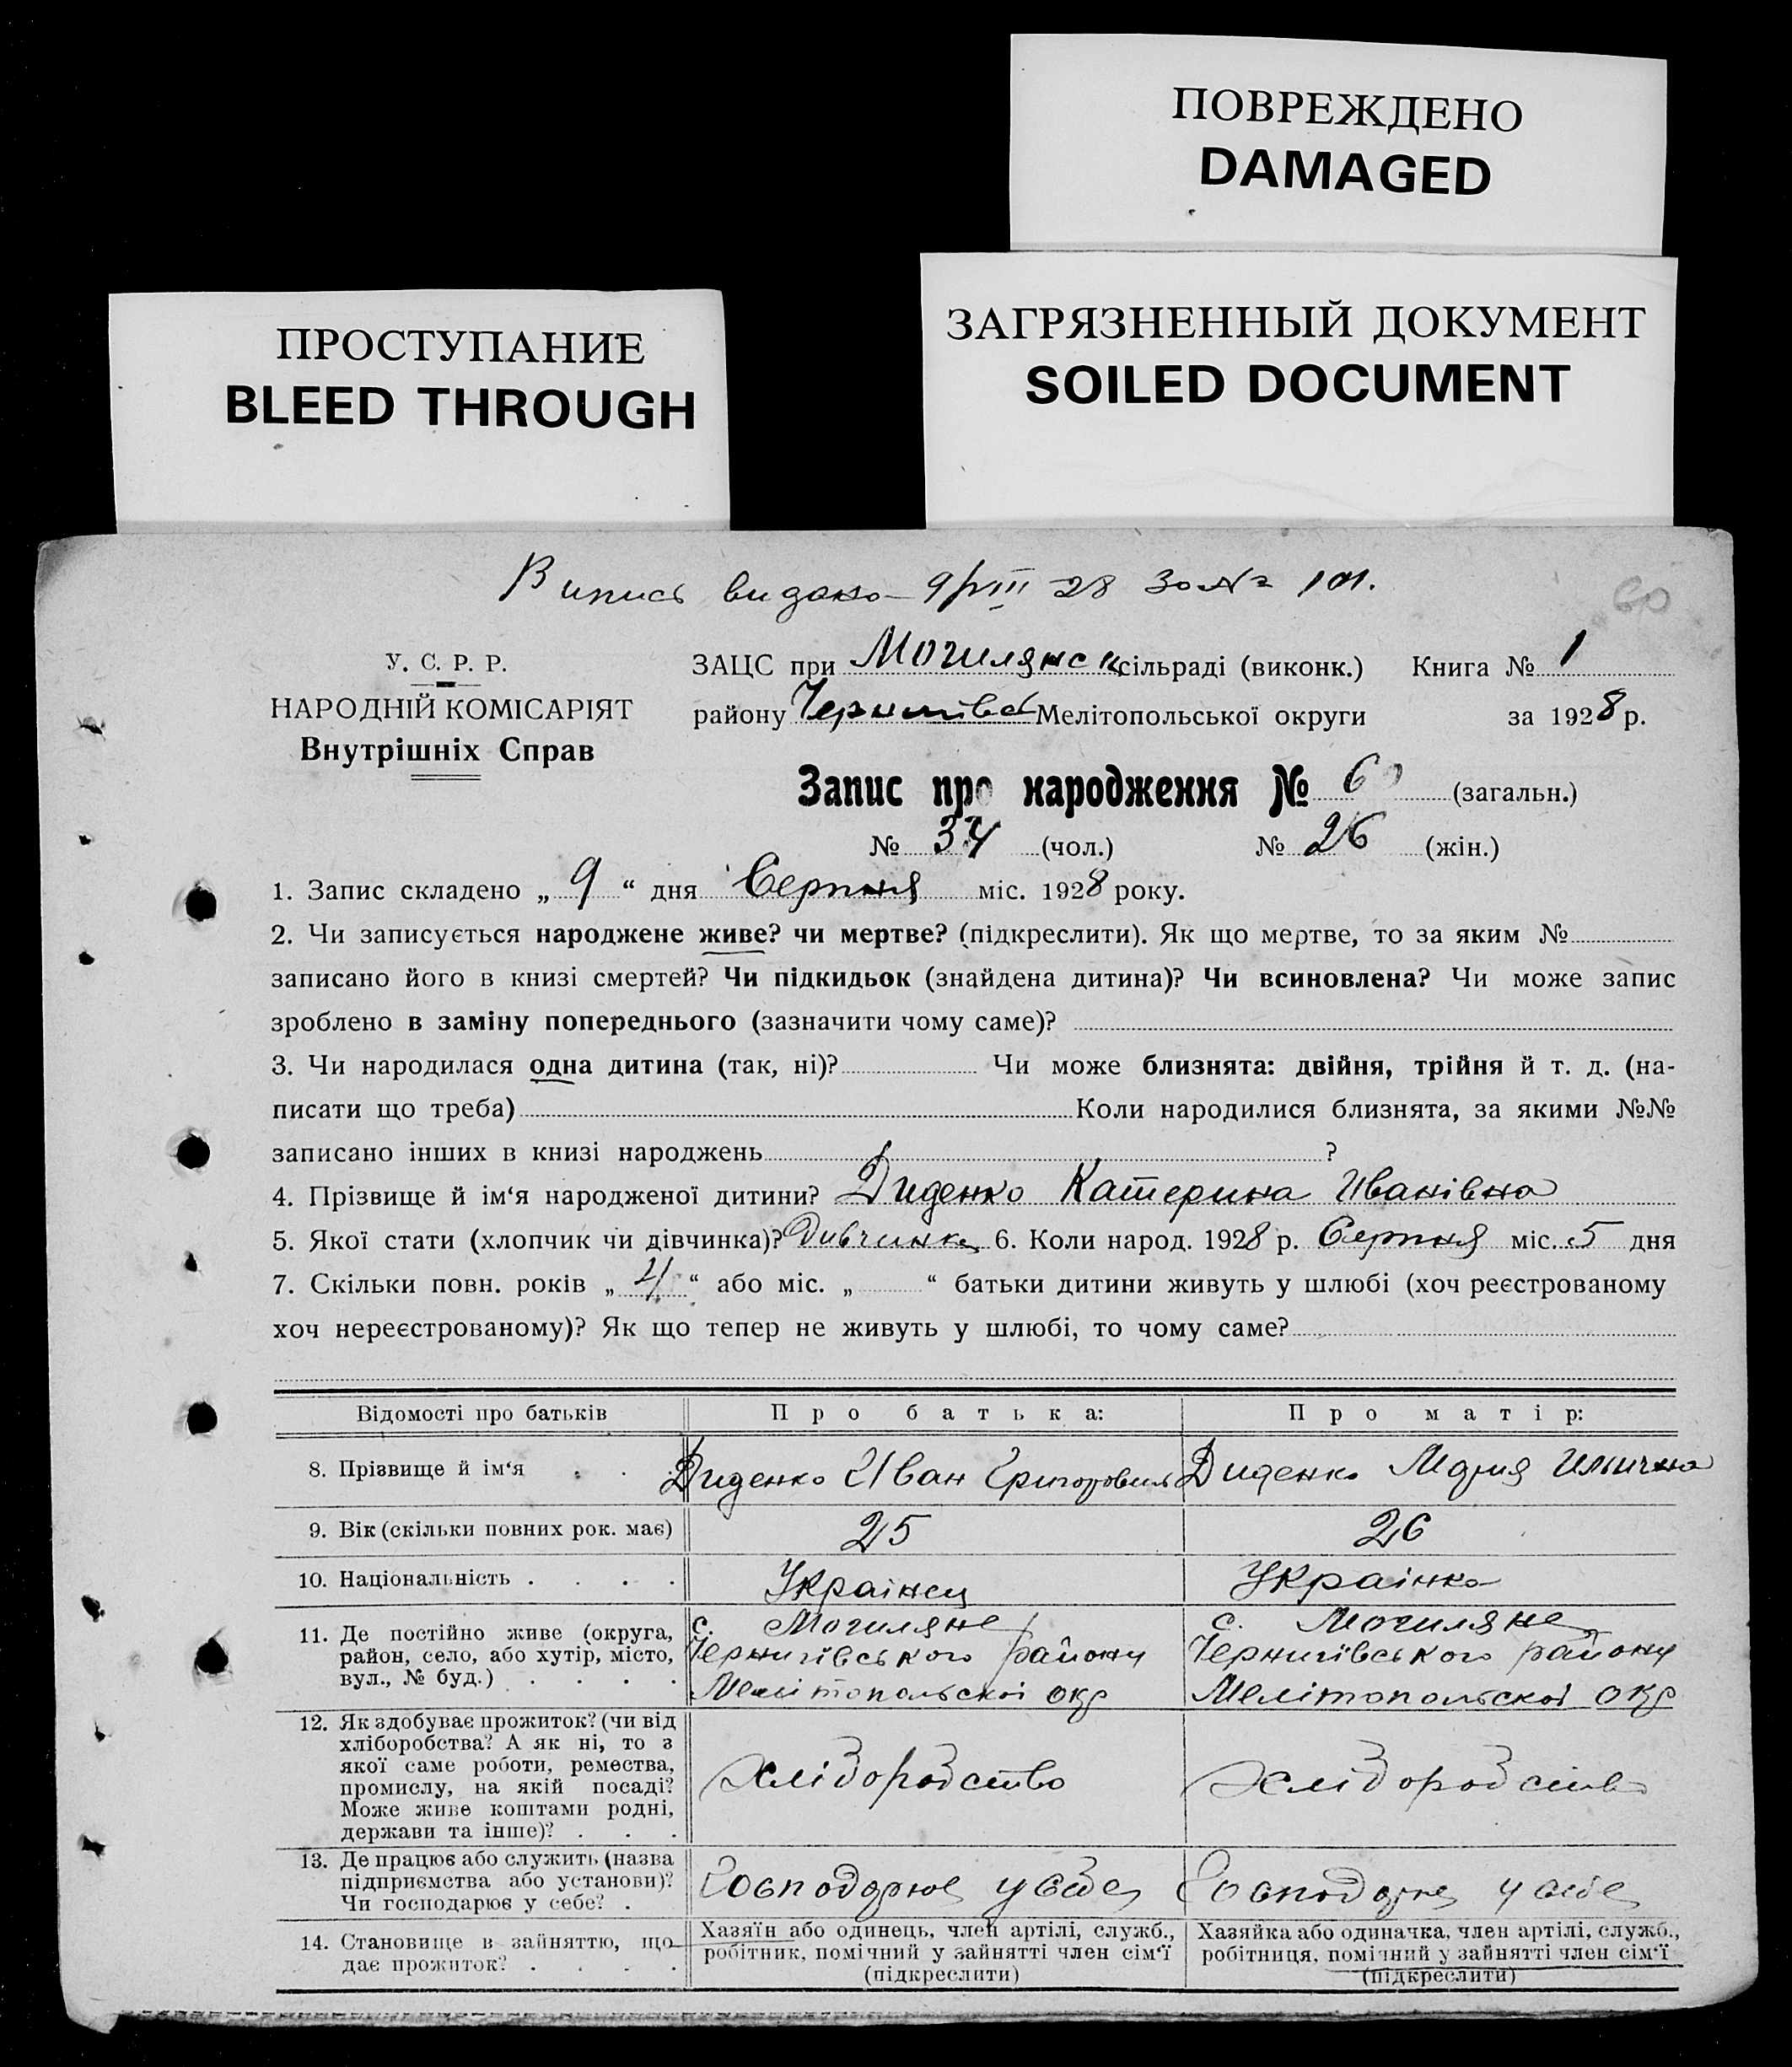 ПОВРЕЖДЕНО
DAMAGED
ПРОСТУПАНИЕ
BLEED THROUGH
ЗАГРЯЗНЕННЫЙ ДОКУМЕНТ
SOILED DOCUMENT
Випись видано 9/VIII 28 за № 101.
60
У. С. Р. Р.
НАРОДНІЙ КОМІСАРІЯТ
Внутрішніх Справ
ЗАЦС при Могилянск сільраді (виконк.) Книга № 1
району Чернигівс Мелітопольської округи за 1928 р.
Запис про народження № 60 (загальн.)
№ 34 (чол.) № 26 (жін.)
1. Запис складено „ 9 “ дня Серпня міс. 1928 року.
2. Чи записується народжене живе? чи мертве? (підкреслити). Як що мертве, то за яким №
записано його в книзі смертей? Чи підкидьок (знайдена дитина)? Чи всиновлена? Чи може запис
зроблено в заміну попереднього (зазначити чому саме)?
3. Чи народилася одна дитина (так, ні)? Чи може близнята: двійня, трійня й т. д. (на-
писати що треба) Коли народилися близнята, за якими №№
записано інших в книзі народжень ?
4. Прізвище й ім‘я народженої дитини? Диденко Катерина Иванівна
5. Якої стати (хлопчик чи дівчинка)? Дивчинка 6. Коли народ. 1928 р. Серпня міс. 5 дня
7. Скільки повн. років „ 4 “ або міс. „ “ батьки дитини живуть у шлюбі (хоч реєстрованому
хоч нереєстрованому)? Як що тепер не живуть у шлюбі, то чому саме?
Відомості про батьків Про батька: Про матір:
8. Прізвище й ім‘я Диденко Иван Григорович Диденко Мария Ильична
9. Вік (скільки повних рок. має) 25 26
10. Національність Украінец Украінка
11. Де постійно живе (округа, район, село, або хутір, місто, вул., № буд.)
с. Могиляне
Чернигівського району
Мелітопольскоі окр
с. Могиляне
Чернигівського району
Мелітопольскоі окр
12. Як здобуває прожиток? (чи від
хліборобства? А як ні, то з
якої саме роботи, ремества,
промислу, на якій посаді?
Може живе коштами родні,
держави та інше)?
хліборобство хліборобство
13. Де працює або служить (назва
підприємства або установи)?
Чи господарює у себе?
Господарює у себе Господарює у себе
14. Становище в зайняттю, що
дає прожиток?
Хазяїн або одинець, член артілі, служб.,
робітник, помічний у зайнятті член сім‘ї
(підкреслити)
Хазяйка або одиначка, член артілі, служб.,
робітниця, помічний у зайнятті член сім‘ї
(підкреслити)